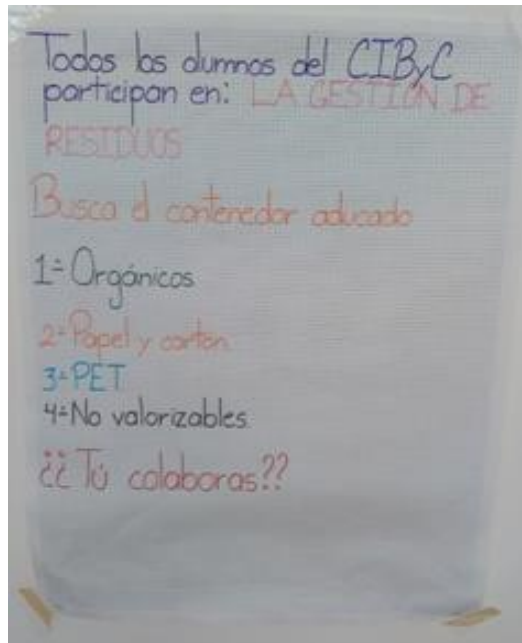 Todos los alumnos del CIByC
participan en: LA GESTIÓN DE
RESIDUOS
Busca el contenedor aducado
1= Orgánicos
2= Papel y cartón
3= PET
4= No valorizables
¿¿Tú colaboras??